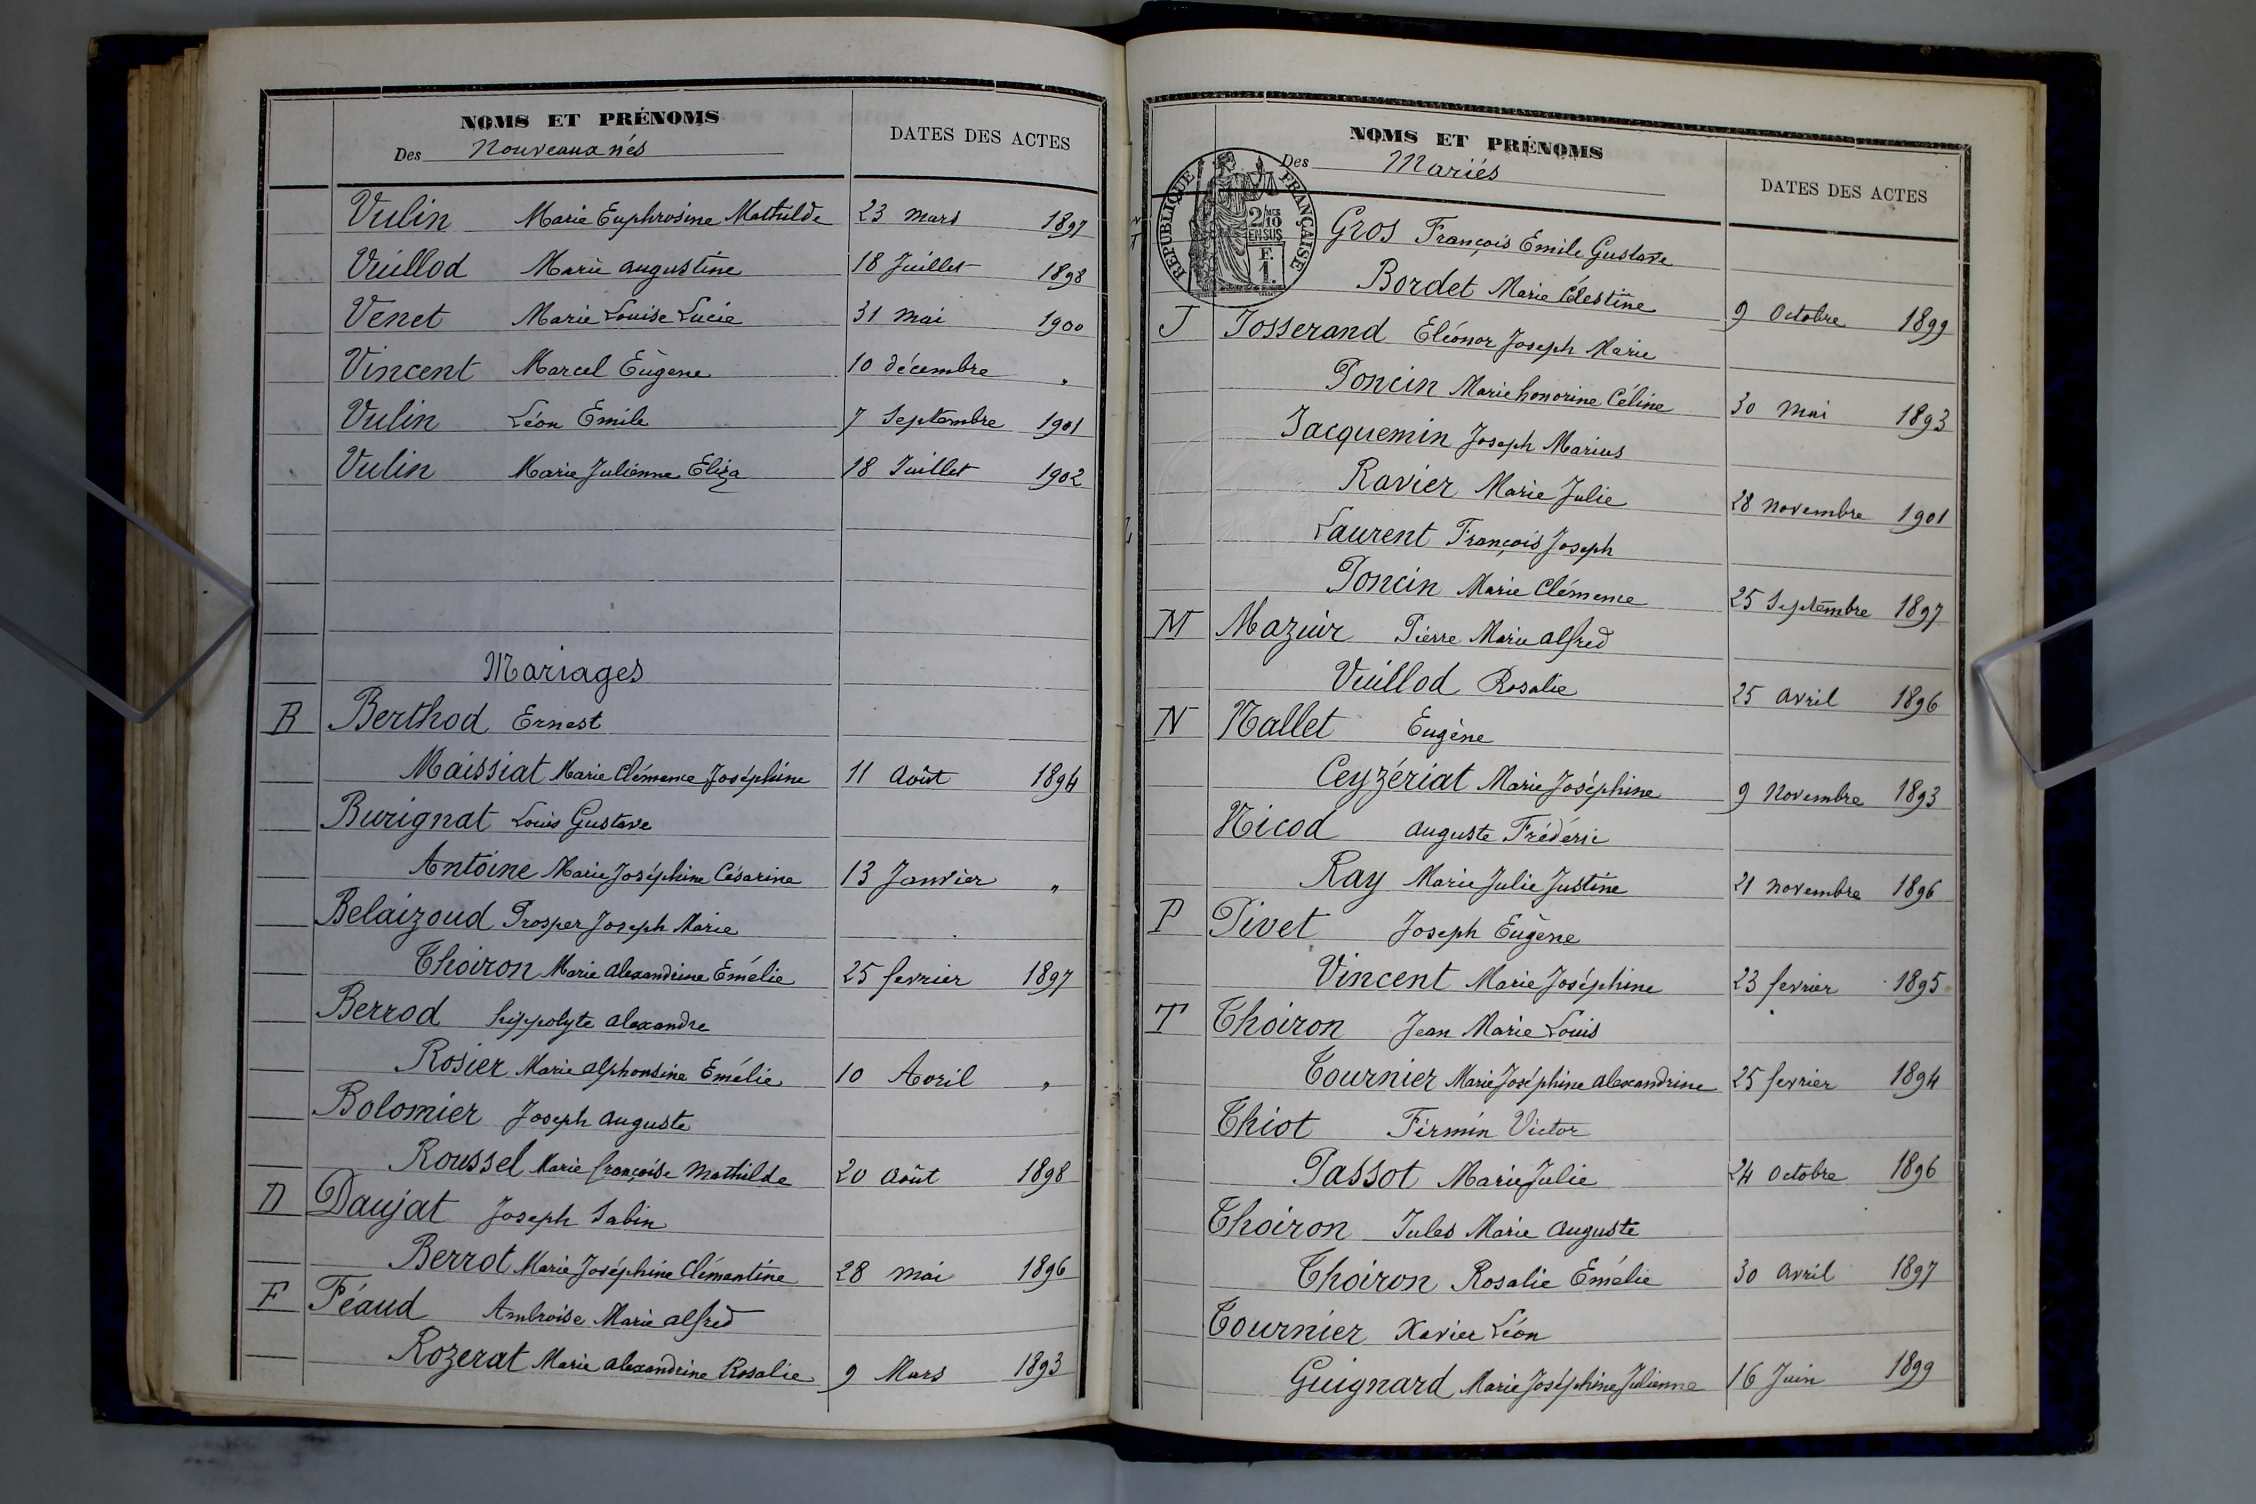 NOMS ET PRÉNOMS
Des Nouveaux nés
DATES DES ACTES
Vulin Marie Euphrosine Mathilde 23 Mars 1897
Vuillod Marie Augustine 18 Juillet 1898
Venet Marie Louise Lucie 31 Mai 1900
Vincent Marcel Eugène 10 décembre "
Vulin Léon Emile 7 Septembre 1901
Vulin Marie Julienne Eliza 18 Juillet 1902
Mariages
B Berthod Ernest
Maissiat Marie Clémence Joséphine 11 Août 1894
Burignat Louis Gustave
Antoine Marie Joséphine Césarine 13 Janvier "
Belaizoud Prosper Joseph Marie
Thoiron Marie Alexandrine Emélie 25 fevrier 1897
Berrod hippolyte Alexandre
Rosier Marie Alphonsine Emélie 10 Avril "
Bolomier Joseph Auguste
Roussel Marie françoise Mathilde 20 Août 1898
D Daujat Joseph Sabin
Berrot Marie Joséphine Clémentine 28 Mai 1896
F Féaud Ambroise Marie Alfred
Rozerat Marie Alexandrine Rosalie 9 Mars 1893
NOMS ET PRÉNOMS
Des Mariés
DATES DES ACTES
RÉPUBLIQUE FRANÇAISE
2/10 EN SUS
F. 1.
Gros François Emile Gustave
Bordet Marie Célestine 9 Octobre 1899
J Josserand Eléonor Joseph Marie
Poncin Marie honorine Céline 30 Mai 1893
Jacquemin Joseph Marius
Ravier Marie Julie 28 Novembre 1901
L Laurent François Joseph
Poncin Marie Clémence 25 Septembre 1897
M Mazuir Pierre Marie Alfred
Vuillod Rosalie 25 Avril 1896
N Nallet Eugène
Ceyzériat Marie Joséphine 9 Novembre 1893
Nicod Auguste Frédéric
Ray Marie Julie Justine 21 Novembre 1896
P Pivet Joseph Eugène
Vincent Marie Joséphine 23 fevrier 1895
T Thoiron Jean Marie Louis
Tournier Marie Joséphine Alexandrine 25 fevrier 1894
Thiot Firmin Victor
Passot Marie Julie 24 Octobre 1896
Thoiron Jules Marie Auguste
Thoiron Rosalie Emélie 30 Avril 1897
Tournier Xavier Léon
Guignard Marie Joséphine Julienne 16 Juin 1899